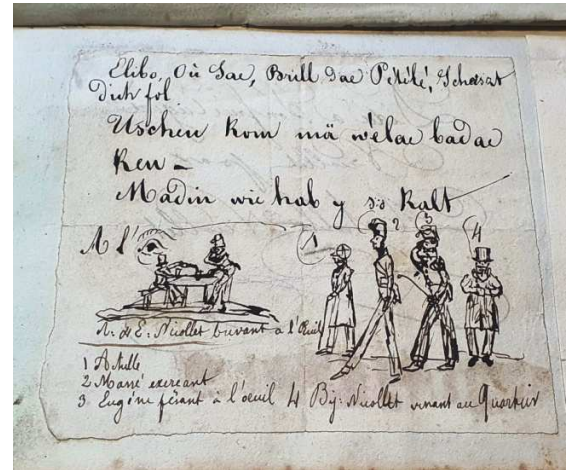 Elibo, Où Sae, Brill Sae Pékélé, Schaeszt
Dich fol
Uschen Kom mä wélae badae
Ken -
Madin wie hab y so Kalt
A l'
1 2 3 4
A: et E: Nicollet buvant à l'Œuil
1 Achille
2 Marré exercant
3 Eugéne fésant à l'œuil 4 Bij: Nicollet venant au Quartier